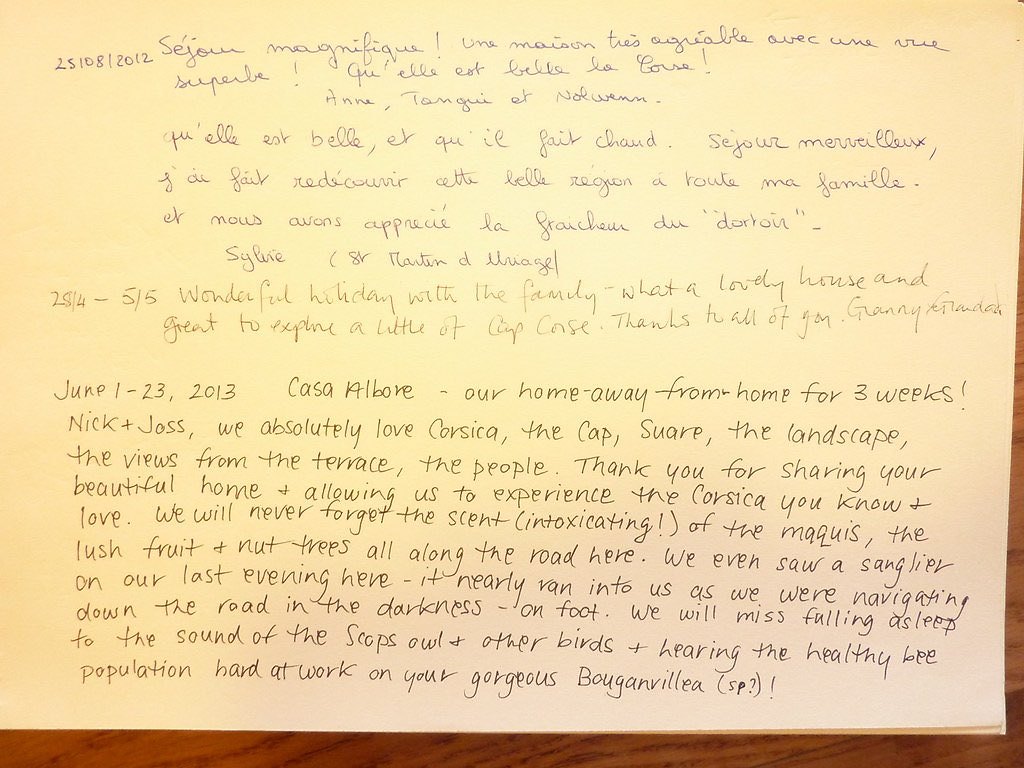 25/08/2012 Séjour magnifique ! Une maison très agréable avec une vue
superbe ! Qu'elle est belle la Corse !
Anne, Tangui et Nolwenn.
qu'elle est belle, et qu'il fait chaud. Séjour merveilleux,
j'ai fait redécouvrir cette belle région à toute ma famille.
et nous avons apprécié la fraicheur du "dortoir" -
Sylvie (St Martin d Uriage)
28/4 - 5/5 Wonderful holiday with the family - what a lovely house and
great to explore a little of Cap Corse. Thanks to all of you. Granny + Grandad
June 1-23, 2013 Casa Albore - our home-away-from-home for 3 weeks!
Nick + Joss, we absolutely love Corsica, the Cap, Suare, the landscape,
the views from the terrace, the people. Thank you for sharing your
beautiful home + allowing us to experience the Corsica you know +
love. We will never forget the scent (intoxicating!) of the maquis, the
lush fruit + nut trees all along the road here. We even saw a sanglier
on our last evening here - it nearly ran into us as we were navigating
down the road in the darkness - on foot. We will miss falling asleep
to the sound of the Scops owl + other birds + hearing the healthy bee
population hard at work on your gorgeous Bouganvillea (sp?)!